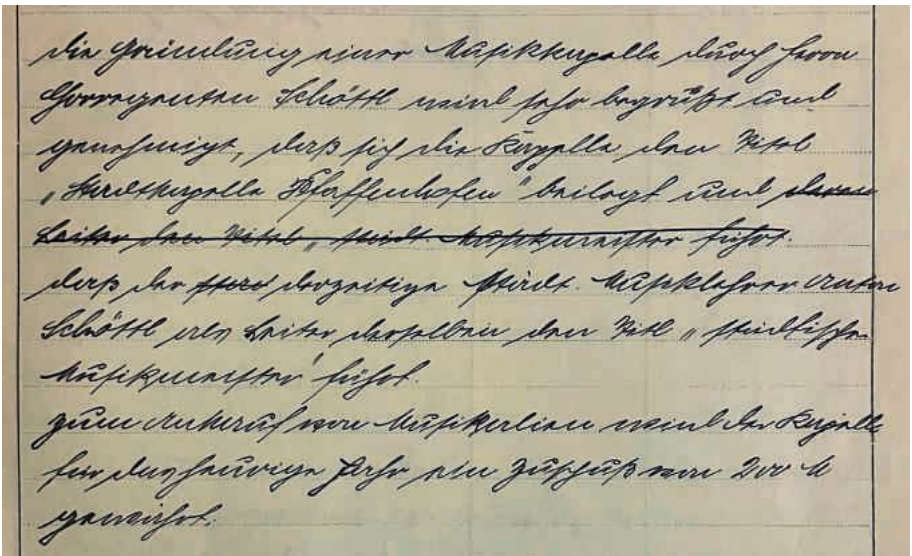 die Gründung einer Musikkapelle durch Herrn
Chorregenten Schöttl wird sehr begrüßt und
genehmigt, daß sich die Kapelle den Titel
„Stadtkapelle Pfaffenhofen" beilegt und deren
Leiter den Titel „städt. Musikmeister führt.
daß der derzeitige städt. Musiklehrer Anton
Schöttl als Leiter derselben den Titl „städtischer
Musikmeister" führt.
Zum Ankauf von Musikalien wird der Kapelle
für das heurige Jahr ein Zuschuß von 200 M
gewährt.